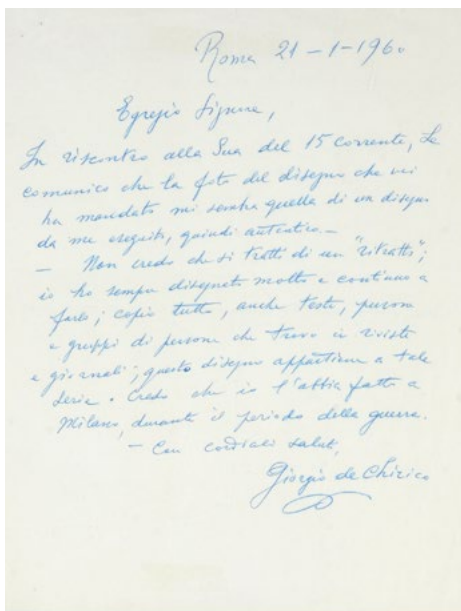 Roma 21-1-1960
Egregio Signore,
In riscontro alla Sua del 15 corrente, Le
comunico che la foto del disegno che mi
ha mandato mi sembra quella di un disegno
da me eseguito, quindi autentico.—
— Non credo che si tratti di un "ritratto";
io ho sempre disegnato molto e continuo a
farlo; copio tutto, anche teste, persone
e gruppi di persone che trovo in riviste
e giornali; questo disegno appartiene a tale
serie. Credo che io l'abbia fatto a
Milano, durante il periodo della guerra.
— Con cordiali saluti,
Giorgio de Chirico